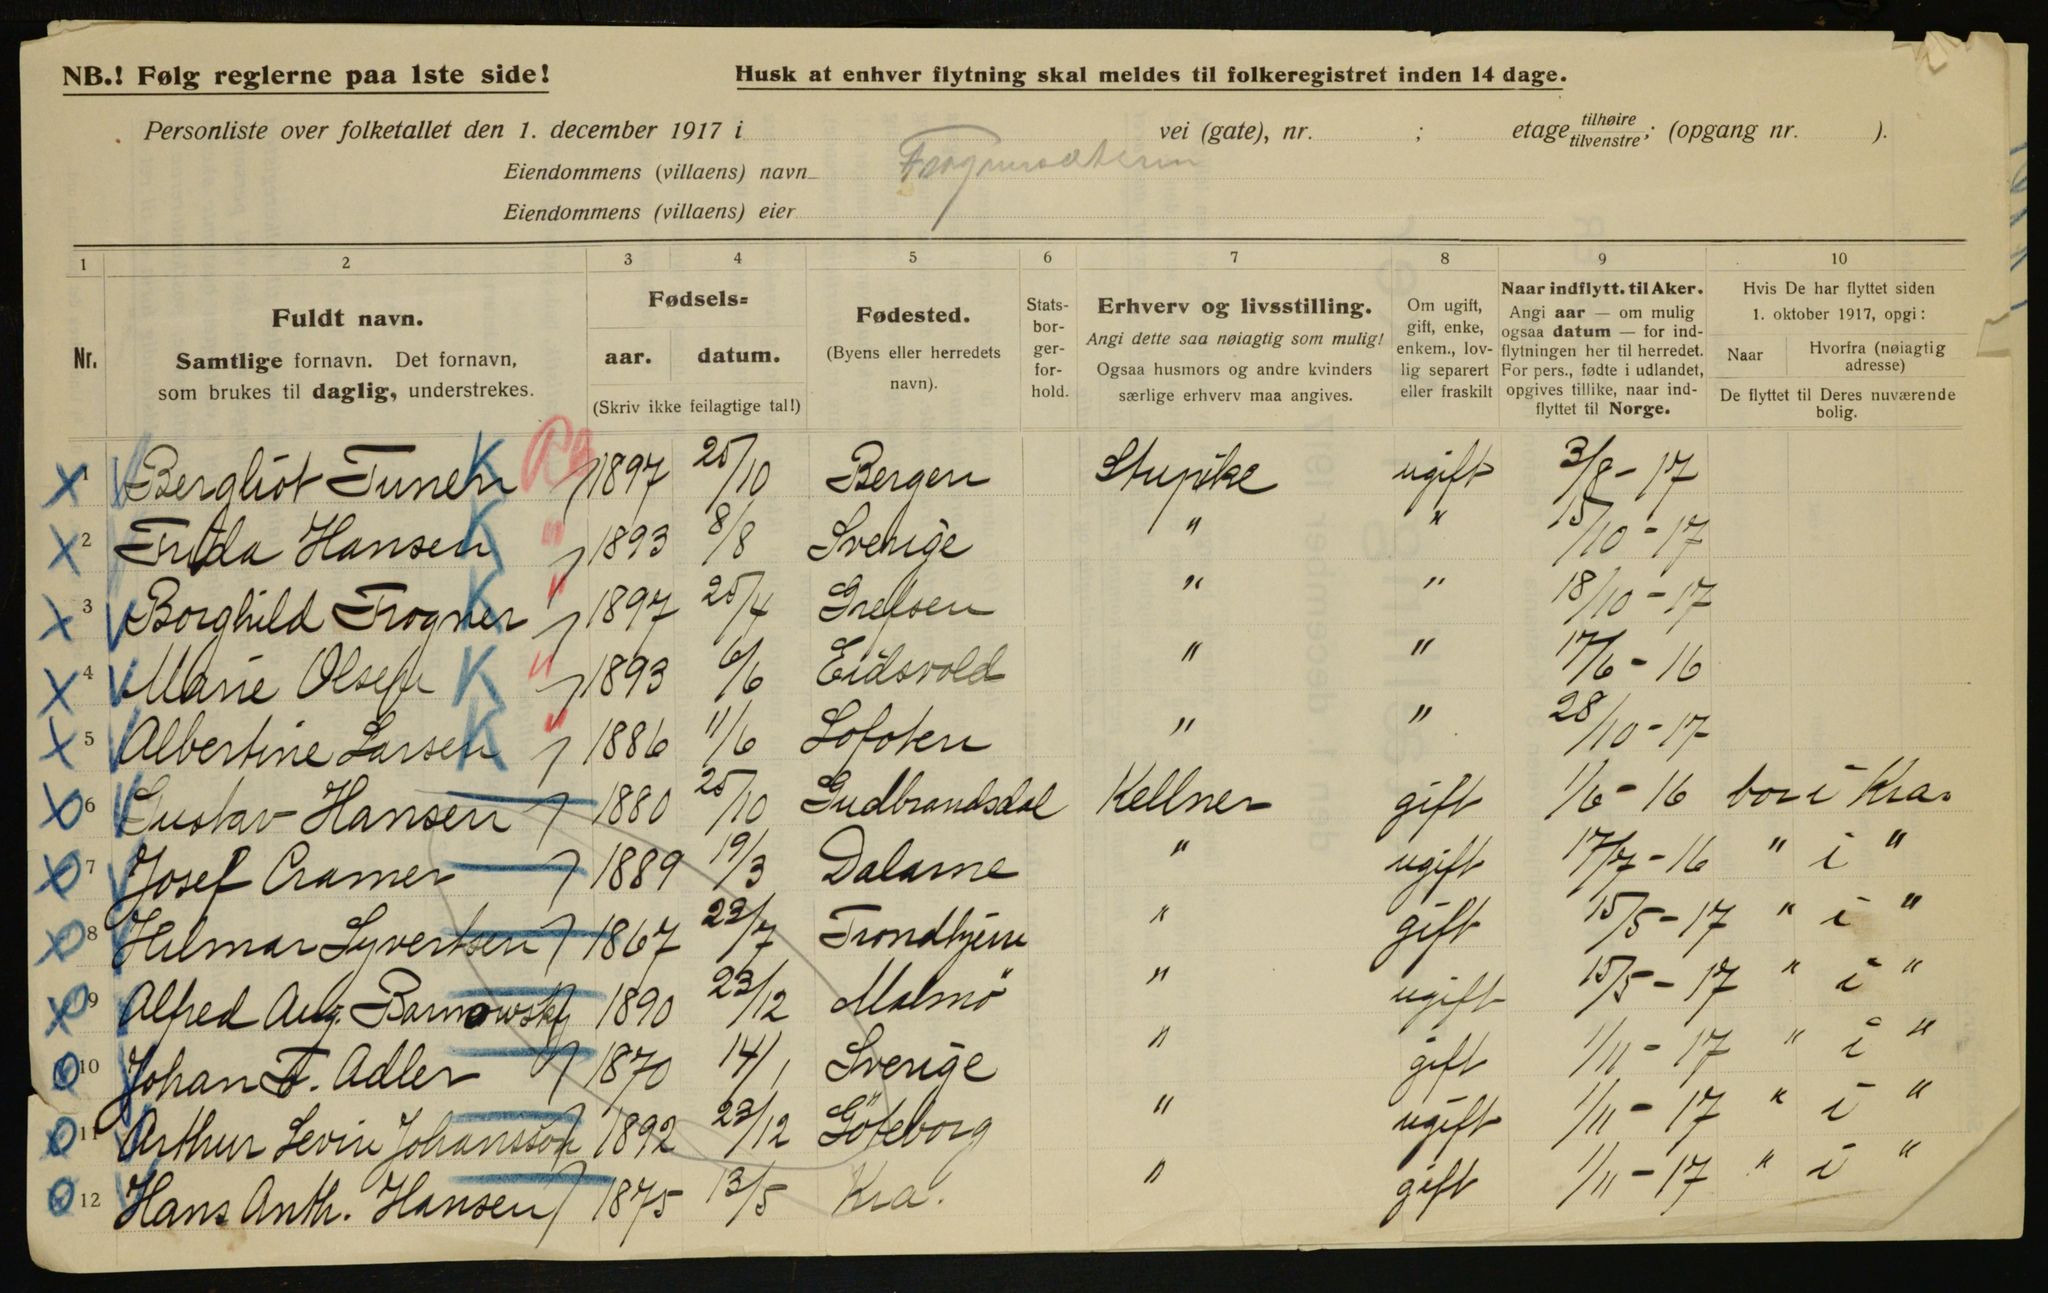 NB.! Følg reglerne paa 1ste side!
Husk at enhver flytning skal meldes til folkeregistret inden 14 dage.
Personliste over folketallet den 1. december 1917 i vei (gate), nr. ; etage tilhøire tilvenstre; (opgang nr. ).
Eiendommens (villaens) navn Frognersæteren
Eiendommens (villaens) eier
1 2 3 4 5 6 7 8 9 10
Nr.
Fuldt navn.
Samtlige fornavn. Det fornavn,
som brukes til daglig, understrekes.
Fødsels=
aar. datum.
(Skriv ikke feilagtige tal!)
Fødested.
(Byens eller herredets
navn).
Stats-
bor-
ger-
for-
hold.
Erhverv og livsstilling.
Angi dette saa nøiagtig som mulig!
Ogsaa husmors og andre kvinders
særlige erhverv maa angives.
Om ugift,
gift, enke,
enkem., lov-
lig separert
eller fraskilt
Naar indflytt. til Aker.
Angi aar — om mulig
ogsaa datum — for ind-
flytningen her til herredet.
For pers., fødte i udlandet,
opgives tillike, naar ind-
flyttet til Norge.
Hvis De har flyttet siden
1. oktober 1917, opgi:
Naar Hvorfra (nøiagtig
adresse)
De flyttet til Deres nuværende
bolig.
1 Bergliot Tunen K 1897 25/10 Bergen Stupike ugift 3/8 - 17
2 Frida Hansen K " 1893 8/8 Sverige " " 15/10 - 17
3 Borghild Frogner K " 1897 25/4 Grefsen " " 18/10 - 17
4 Marie Olsen K " 1893 6/6 Eidsvold " " 17/6 - 16
5 Albertine Larsen K " 1886 11/6 Lofoten " " 28/10 - 17
6 Gustav Hansen 1880 25/10 Gudbrandsdal Kellner gift 1/6 - 16 bor i Kra.
7 Josef Cramer 1889 19/3 Dalarne " ugift 17/7 - 16 " i "
8 Hilmar Syvertsen 1867 23/7 Trondhjem " gift 15/5 - 17 " i "
9 Alfred Aug. Barnowsky 1890 23/12 Malmö " ugift 15/5 - 17 " i "
10 Johan F. Adler 1870 14/1 Sverige " gift 1/11 - 17 " i "
11 Arthur Levin Johansson 1892 23/12 Göteborg " ugift 1/11 - 17 " i "
12 Hans Anth. Hansen 1875 13/5 Kra. " gift 1/11 - 17 " i "